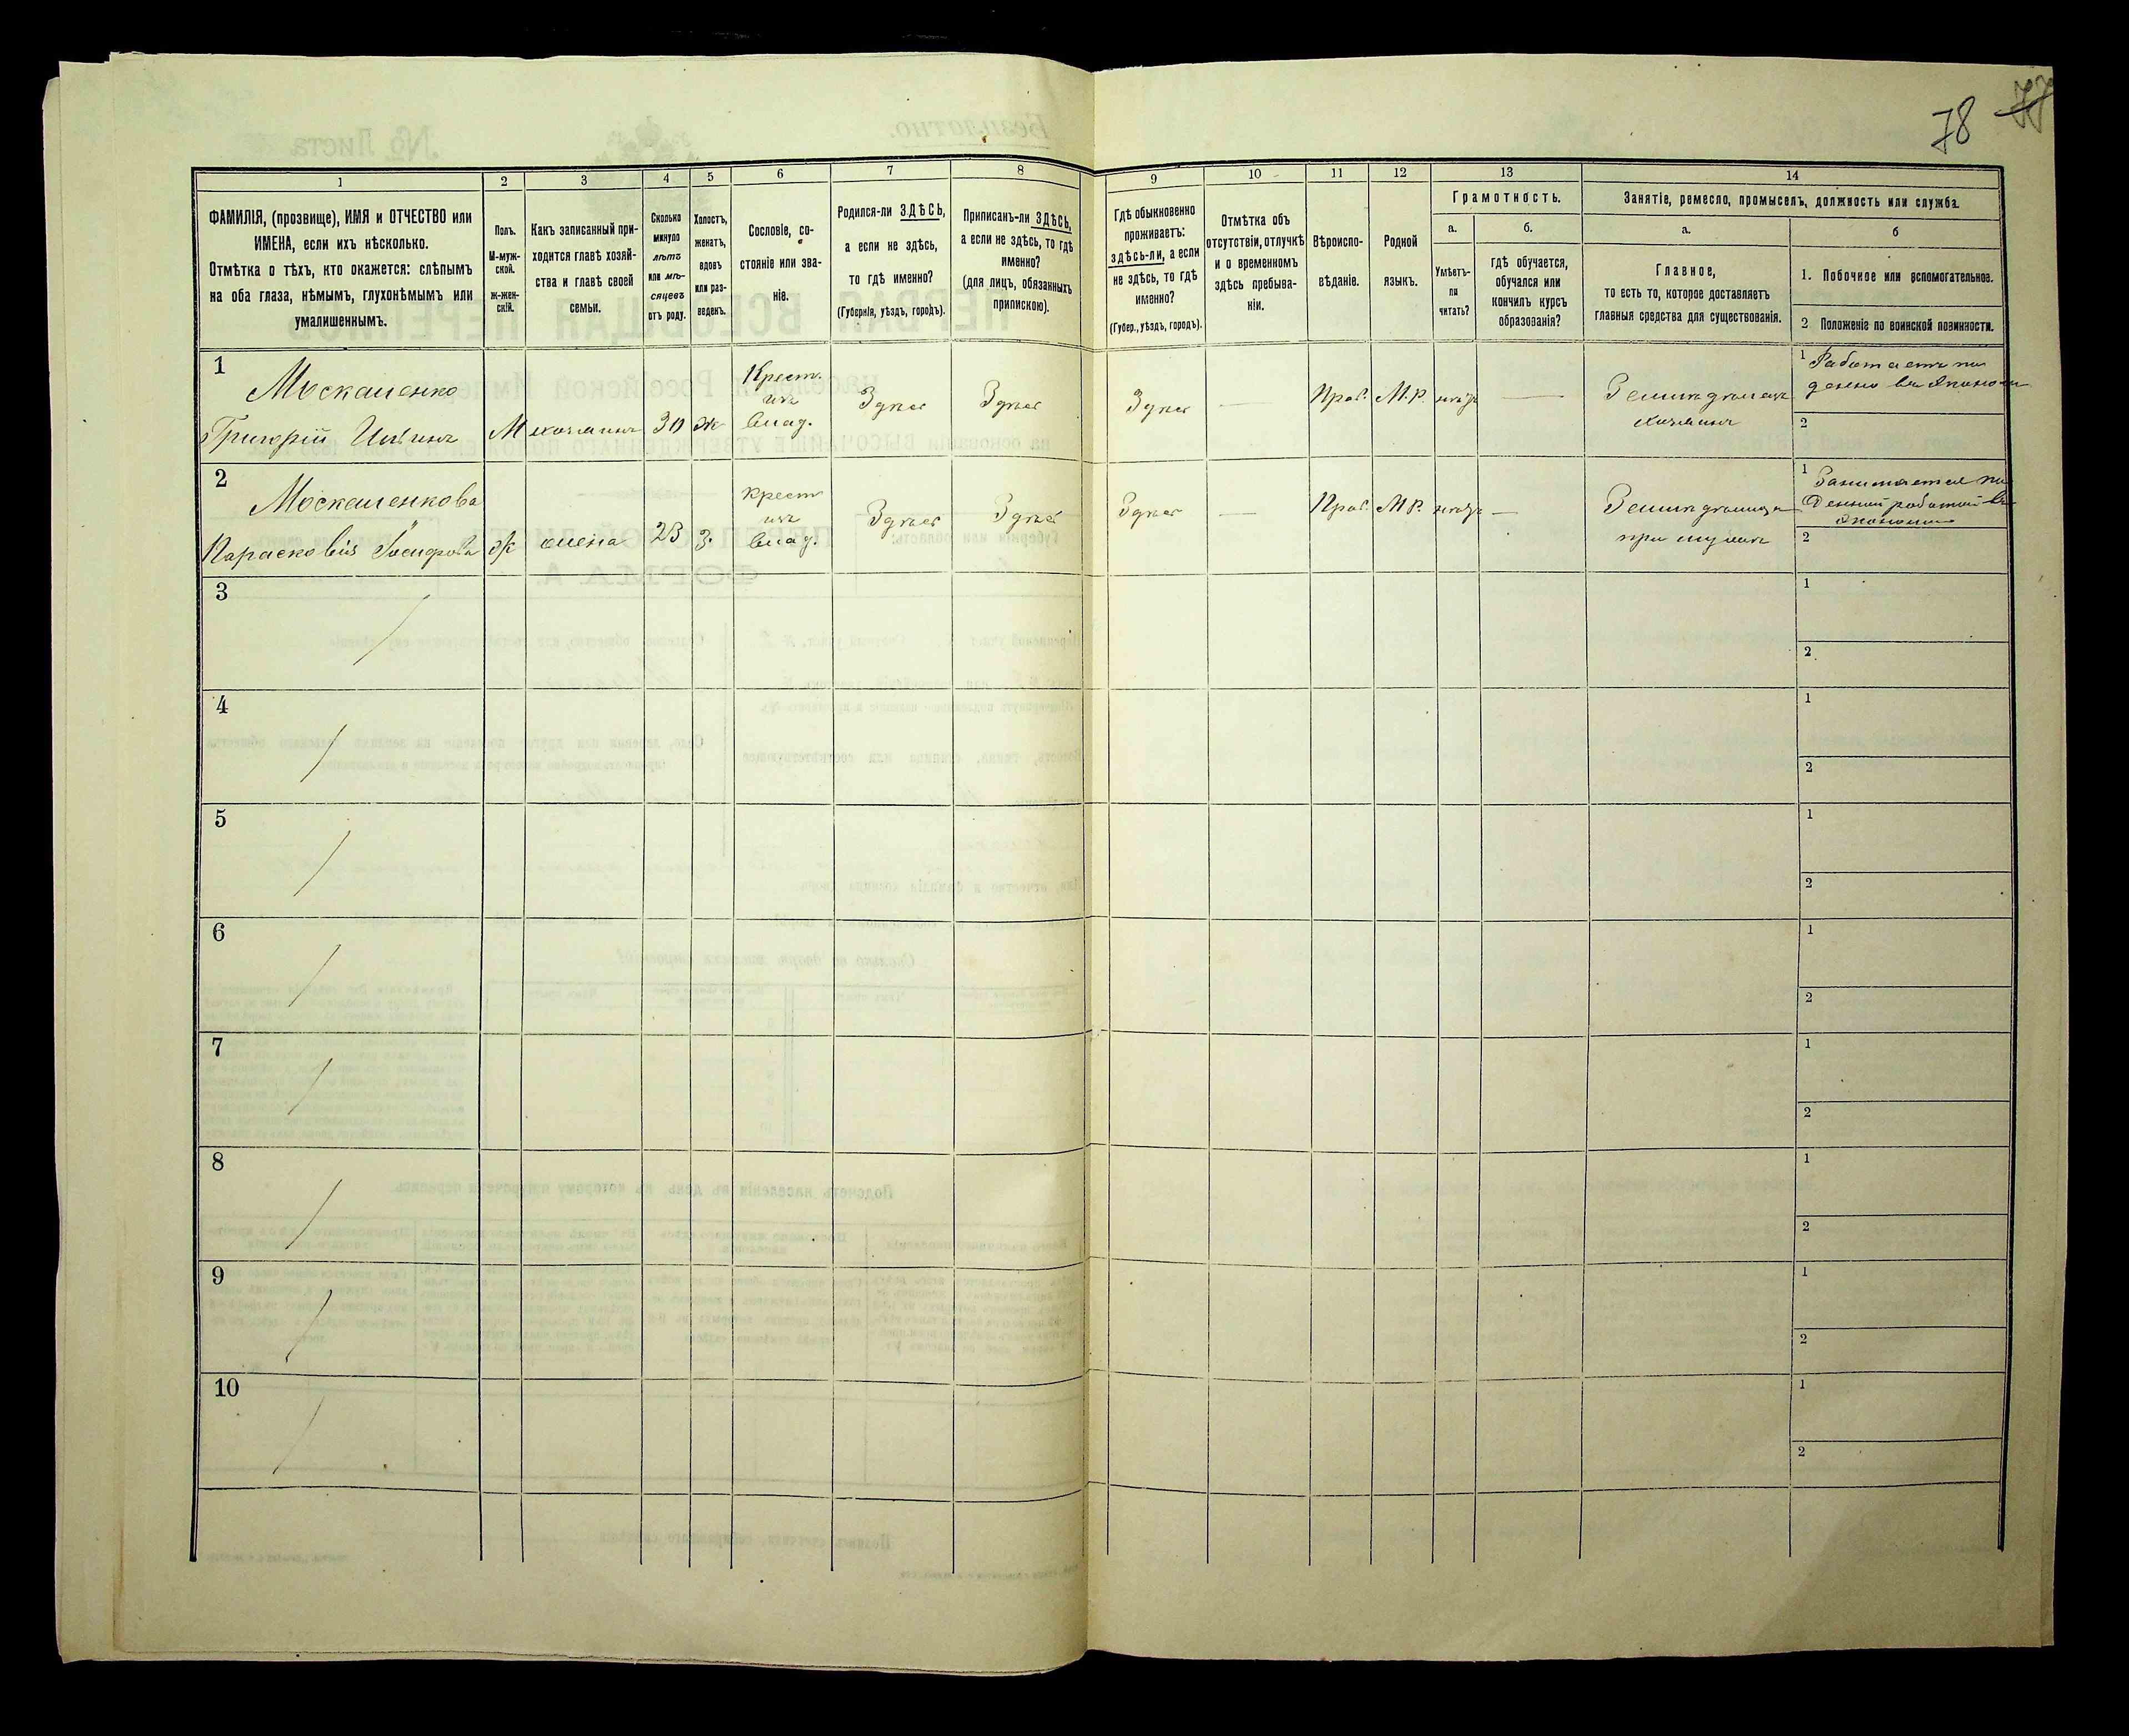 78 77
1 2 3 4 5 6 7 8 9 10 11 12 13 14
ФАМИЛІЯ, (прозвище), ИМЯ и ОТЧЕСТВО или
ИМЕНА, если ихъ нѣсколько.
Отмѣтка о тѣхъ, кто окажется: слѣпымъ
на оба глаза, нѣмымъ, глухонѣмымъ или
умалишеннымъ.
Полъ.
М-муж-
ской.
ж-жен-
скій.
Какъ записанный при-
ходится главѣ хозяй-
ства и главѣ своей
семьи.
Сколько
минуло
лѣтъ
или мѣ-
сяцевъ
отъ роду.
Холостъ,
женатъ,
вдовъ
или раз-
веденъ.
Сословіе, со-
стояніе или зва-
ніе.
Родился-ли ЗДѢСЬ,
а если не здѣсь,
то гдѣ именно?
(Губернія, уѣздъ, городъ).
Приписанъ-ли ЗДѢСЬ,
а если не здѣсь, то гдѣ
именно?
(для лицъ, обязанныхъ
припискою).
Гдѣ обыкновенно
проживаетъ:
здѣсь-ли, а если
не здѣсь, то гдѣ
именно?
(Губер., уѣздъ, городъ).
Отмѣтка объ
отсутствіи, отлучкѣ
и о временномъ
здѣсь пребыва-
ніи.
Вѣроиспо-
вѣданіе.
Родной
языкъ.
Грамотность.
а.
Умѣетъ-
ли
читать?
б.
гдѣ обучается,
обучался или
кончилъ курсъ
образованія?
Занятіе, ремесло, промыселъ, должность или служба.
а.
Главное,
то есть то, которое доставляетъ
главныя средства для существованія.
б
1. Побочное или вспомогательное.
2 Положеніе по воинской повинности.
1
Москаленко
Григорій М хозяинъ 30 ж
Крест.
изъ
влад.
Здѣсь Здѣсь Здѣсь — Прав. М.Р. нѣтъ —
Земледѣлецъ
хозяинъ
1 Работаетъ по
денно въ Экономіи
2
2
Москаленкова
Парасковія Іосифова ж жена 23 З.
крест
изъ
влад.
Здѣсь Здѣсь Здѣсь — Прав. М.Р. нѣтъ —
Земледѣлица
при мужѣ
1 Занимается по
денной работой въ
Экономіи
2
3
1
2
4
1
2
5
1
2
6
1
2
7
1
2
8
1
2
9
1
2
10
1
2